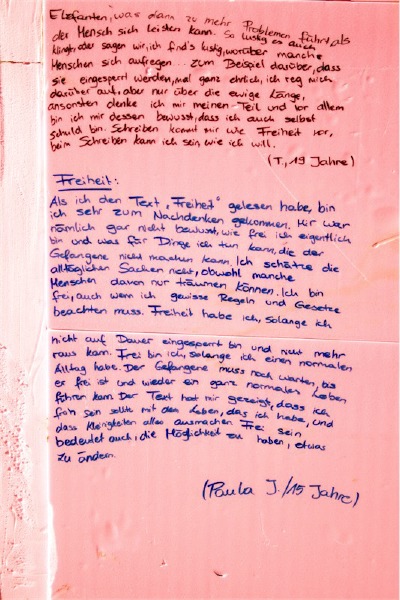 Elefanten, was dann zu mehr Problemen führt, als
der Mensch sich leisten kann. So lustig es auch
klingt, oder sagen wir, ich find's lustig, worüber manche
Menschen sich aufregen... zum Beispiel darüber, dass
sie eingesperrt werden, mal ganz ehrlich, ich reg mich
darüber auf, aber nur über die ewige Länge,
ansonsten denke ich mir meinen Teil und vor allem
bin ich mir dessen bewusst, dass ich auch selbst
schuld bin. Schreiben kommt mir wie Freiheit vor,
beim Schreiben kann ich sein, wie ich will.
(T., 19 Jahre)
Freiheit:
Als ich den Text „Freiheit" gelesen habe, bin
ich sehr zum Nachdenken gekommen. Mir war
nämlich gar nicht bewusst, wie frei ich eigentlich
bin und was für Dinge ich tun kann, die der
Gefangene nicht machen kann. Ich schätze die
alltäglichen Sachen nicht, obwohl manche
Menschen davon nur träumen können. Ich bin
frei, auch wenn ich gewisse Regeln und Gesetze
beachten muss. Freiheit habe ich, solange ich
nicht auf Dauer eingesperrt bin und nicht mehr
raus kann. Frei bin ich, solange ich einen normalen
Alltag habe. Der Gefangene muss noch warten, bis
er frei ist und wieder ein ganz normales Leben
führen kann. Der Text hat mir gezeigt, dass ich
froh sein sollte mit dem Leben, das ich habe, und
dass Kleinigkeiten alles ausmachen. Frei sein
bedeutet auch, die Möglichkeit zu haben, etwas
zu ändern.
(Paula J./15 Jahre)